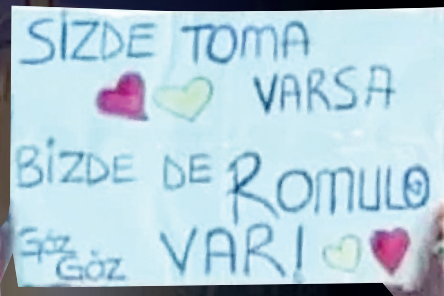 SİZDE TOMA
VARSA
BİZDE DE ROMULO
VAR!
Göz
Göz